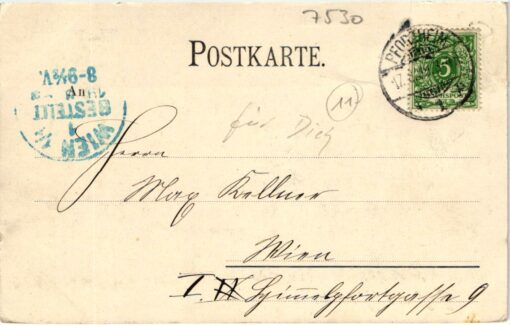 7530
POSTKARTE.
PFORZHEIM
17.
5
11
An
WIEN 1/1
BESTELLT
8-9½V.
für Dich
Herrn
Max Kellner
Wien
I. Himmelpfortgasse 9